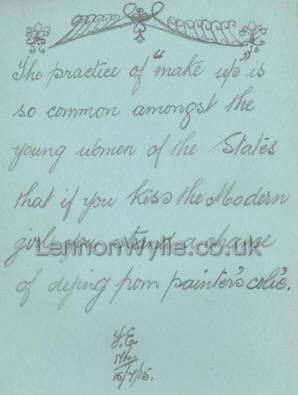 The practice of "make up" is
so common amongst the
young women of the States
that if you kiss the Modern
girl you stand a chance
LennonWylie.co.uk
of dying from painter's colic.
15/7/15.